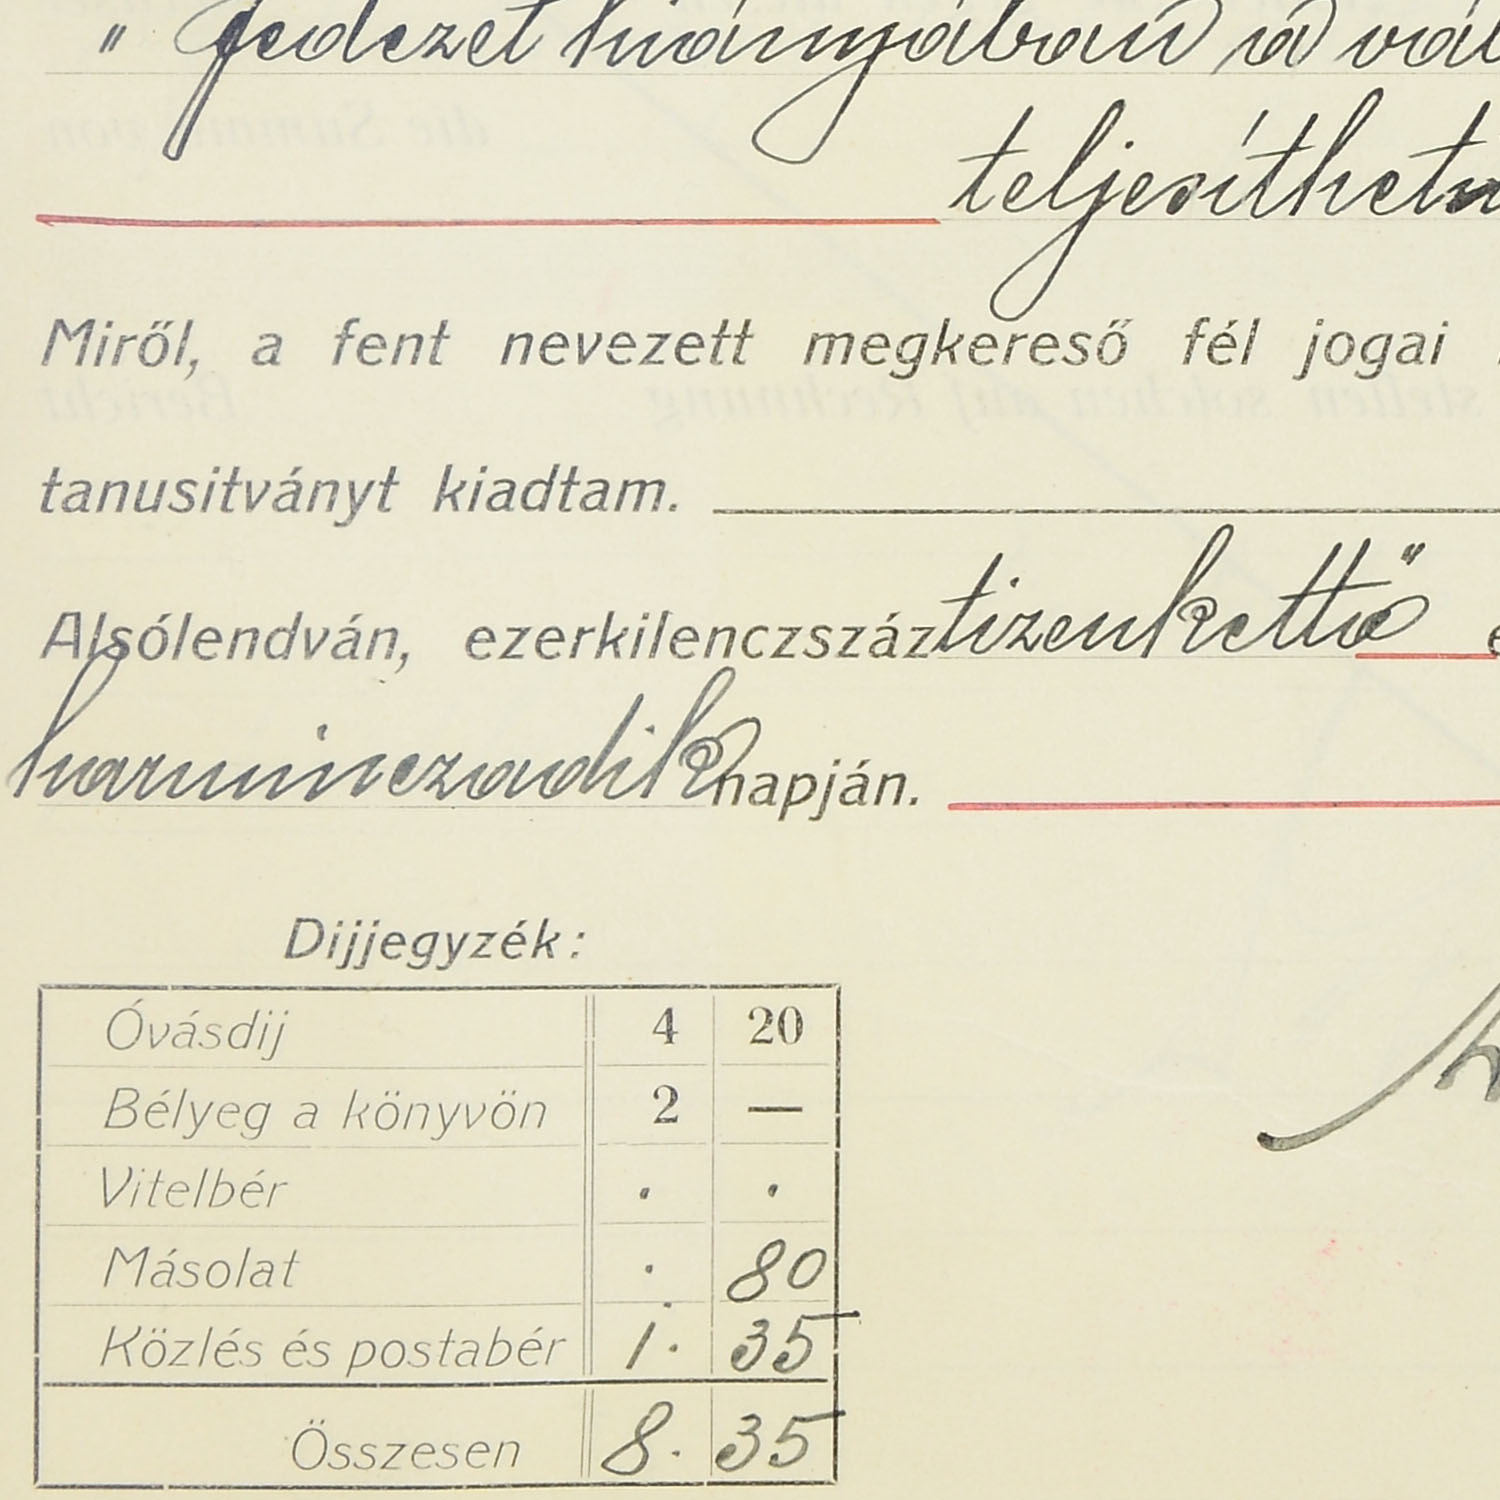 " fedezet hiányában a
teljesíthet
Miről, a fent nevezett megkereső fél jogai
tanusitványt kiadtam.
Alsólendván, ezerkilenczszáztizenkettő
harminczadik napján.
Dijjegyzék:
Óvásdij 4 20
Bélyeg a könyvön 2 —
Vitelbér . .
Másolat . 80
Közlés és postabér 1. 35
Összesen 8. 35